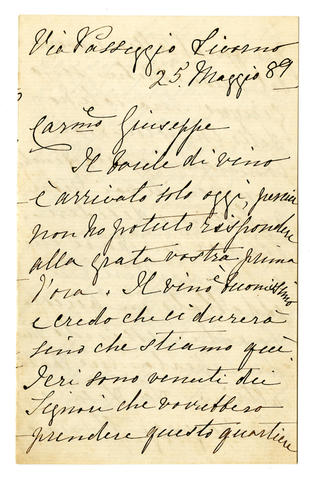 Via Passeggio Livorno
25. Maggio 89
Carmo Giuseppe
Il barile di vino
è arrivato solo oggi, perciò
non ho potuto rispondere
alla grata vostra prima
d'ora. Il vino è buonissimo
e credo che ci durerà
sino che stiamo quì.
Ieri sono venuti dei
Signori che vorrebbero
prendere questo quartiere